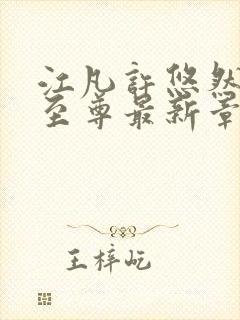 江凡許悠然
至尊最新章
王梓屹